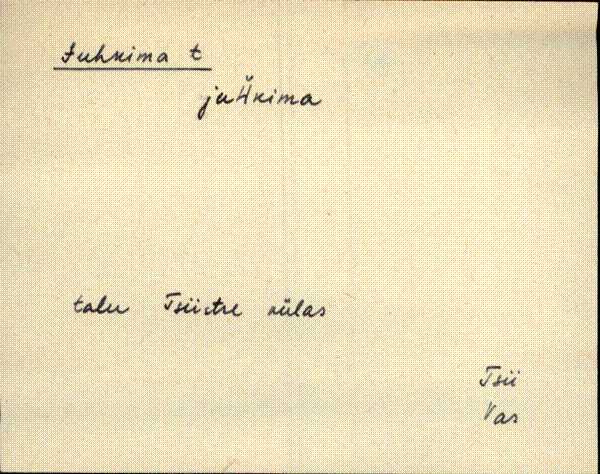 Juhkima t
juH̆kima
talu Tsiistre külas
Tsii
Vas